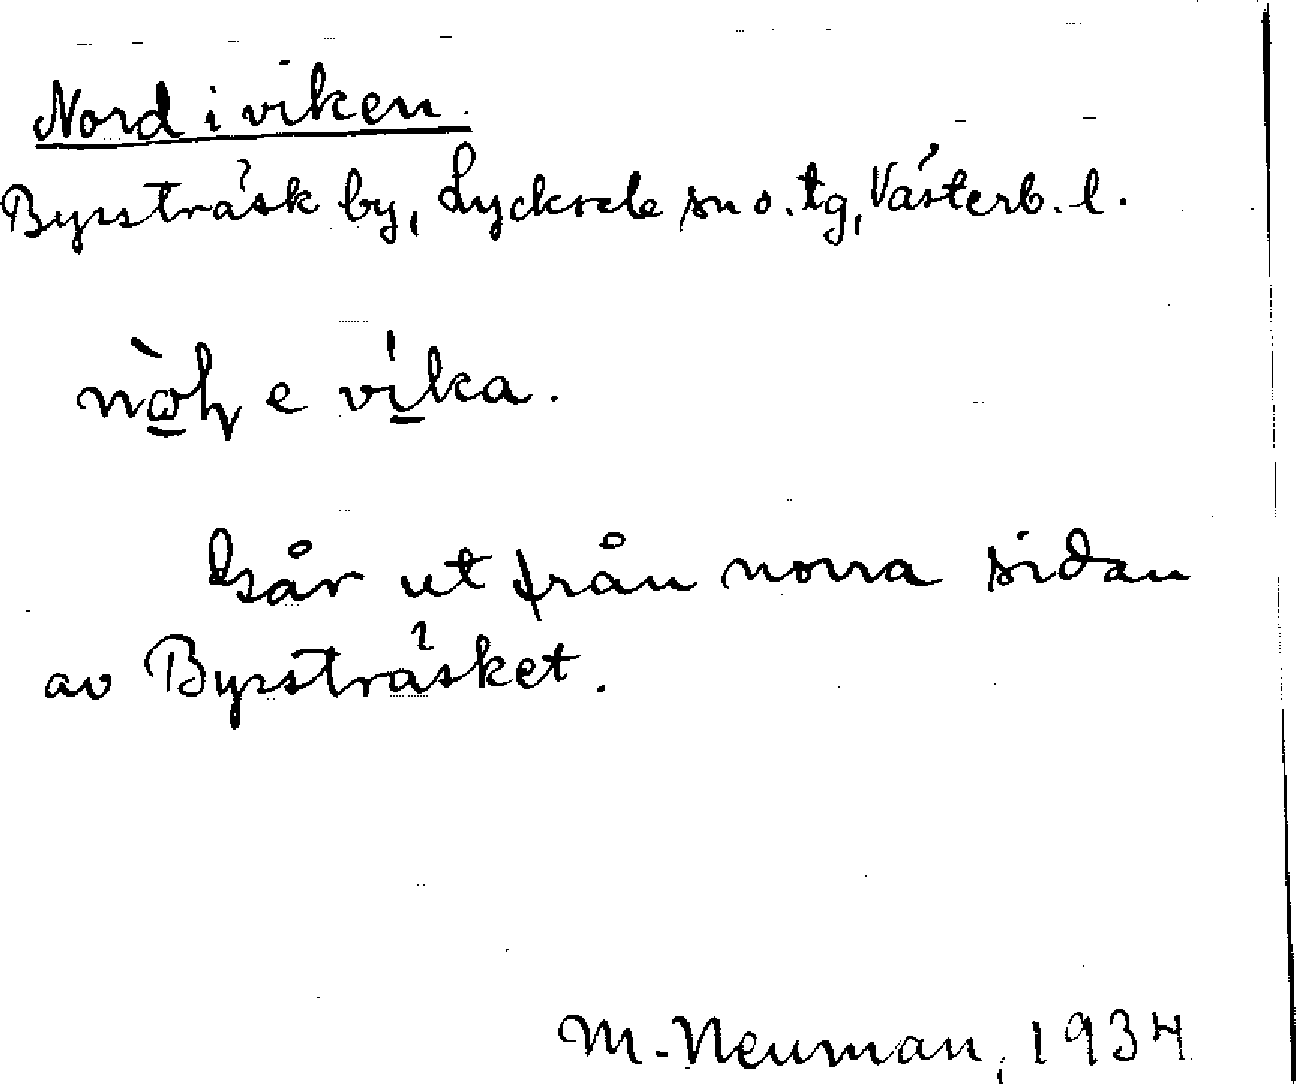 Nord i viken.
Byssträsk by, Lycksele sn o. tg, Västerb. l.
e vika.
Går ut från norra sidan
av Byssträsket.
M. Neuman, 1934